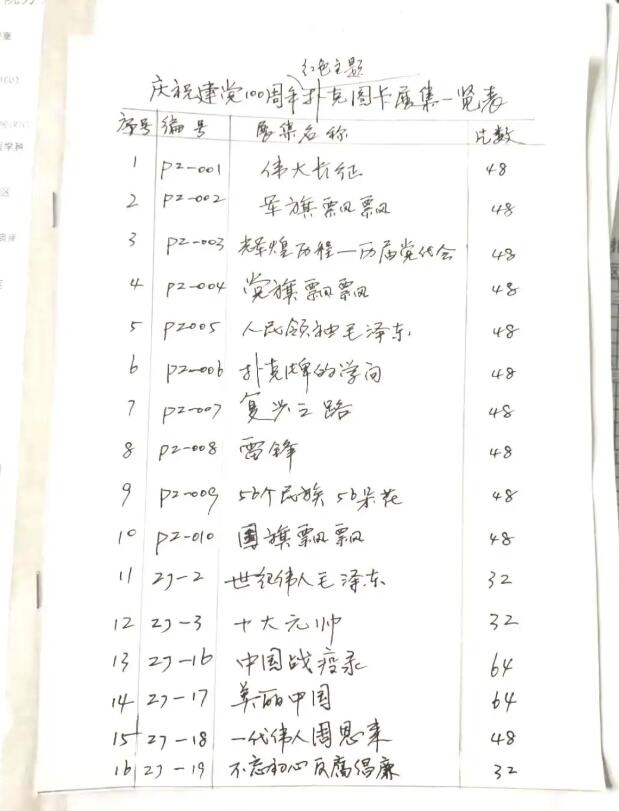 红色主题
庆祝建党100周年扑克图卡展集一览表
序号 编号 展集名称 片数
1 PZ-001 伟大长征 48
2 PZ-002 军旗飘飘 48
3 PZ-003 辉煌历程—历届党代会 48
4 PZ-004 党旗飘飘 48
5 PZ005 人民领袖毛泽东 48
6 PZ-006 扑克牌的学问 48
7 PZ-007 复兴之路 48
8 PZ-008 雷锋 48
9 PZ-009 56个民族56朵花 48
10 PZ-010 国旗飘飘 48
11 ZJ-2 世纪伟人毛泽东 32
12 ZJ-3 十大元帅 32
13 ZJ-16 中国战疫录 64
14 ZJ-17 美丽中国 64
15 ZJ-18 一代伟人周恩来 48
16 ZJ-19 不忘初心反腐倡廉 32